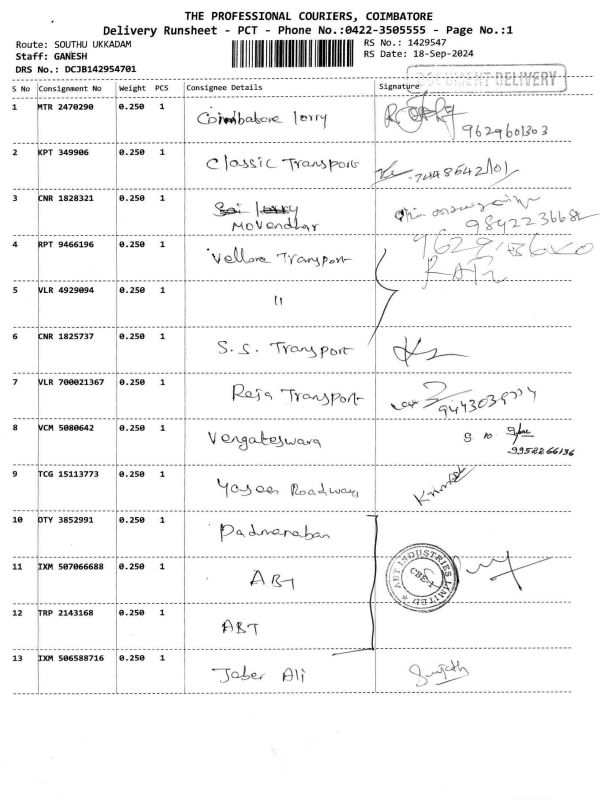 THE PROFESSIONAL COURIERS, COIMBATORE
Delivery Runsheet - PCT - Phone No.:0422-3505555 - Page No.:1
Route: SOUTHU UKKADAM RS No.: 1429547
Staff: GANESH RS Date: 18-Sep-2024
DRS No.: DCJB142954701
DOCUMENT DELIVERY
S No Consignment No Weight PCS Consignee Details Signature
1 MTR 2470290 0.250 1 Coimbatore lorry
9629601303
2 KPT 349906 0.250 1 Classic Transport 7448642101
3 CNR 1828321 0.250 1 Sai lorry
Movendhar 9842236682
4 RPT 9466196 0.250 1 Vellore Transport
5 VLR 4929094 0.250 1 "
6 CNR 1825737 0.250 1 S.S. Transport
7 VLR 700021367 0.250 1 Raja Transport
8 VCM 5080642 0.250 1 Vengateswara
9952266136
9 TCG 15113773 0.250 1 Yasees Roadways
10 OTY 3852991 0.250 1 Padmanaban
11 IXM 507066688 0.250 1 ABT
ABT INDUSTRIES LIMITED
CBE-1
12 TRP 2143168 0.250 1 ABT
13 IXM 506588716 0.250 1 Jaber Ali